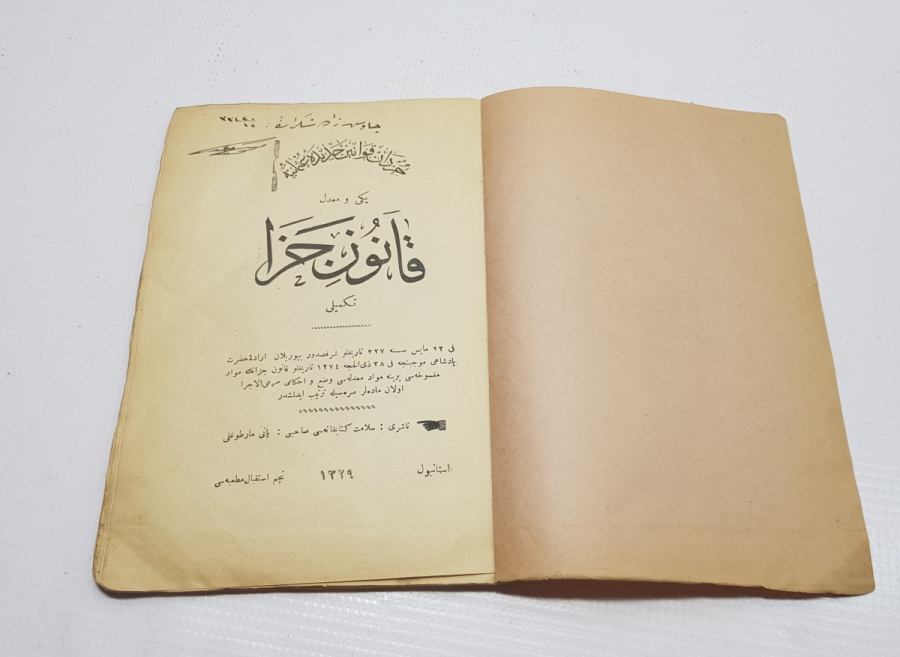 جزدان قوانین جدیدهٔ عثمانیه
یكی و معدل
قَانُونِ جَزَا
تكمیلی
فی ٢٢ مایس سنه ٣٢٧ تاریخلو شرفصدور بیوریلان ارادهٔ حضرت
پادشاهی موجبنجه فی ٢٨ ذی الحجه ١٢٧٤ تاریخلو قانون جزانك مواد
مفسوخه‌سی یرینه مواد معدله‌سی وضع و احكامی مرعی الاجرا
اولان ماده‌لر صره‌سیله ترتیب ایدلشدر
ناشری : سلامت كتابخانه‌سی صاحبی : یانی مارطوغلی
استانبول ١٣٢٩ نجم استقبال مطبعه‌سی